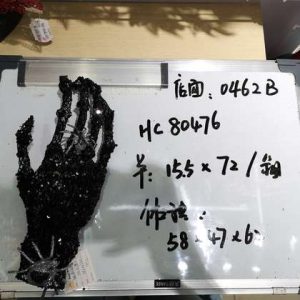 店面: 0462B
HC 80476
羊: 15.5 × 72 / 箱
体积:
58 × 47 × 6